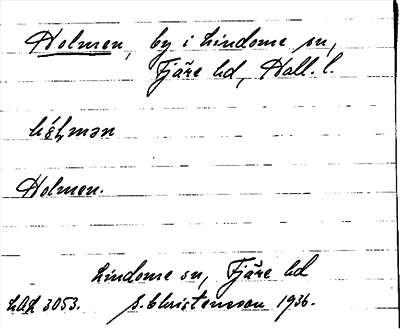 Holmen, by i Lindome sn,
Fjäre hd, Hall. l.
Holmen.
Lindome sn, Fjäre hd
3053. S. Christensson 1936.